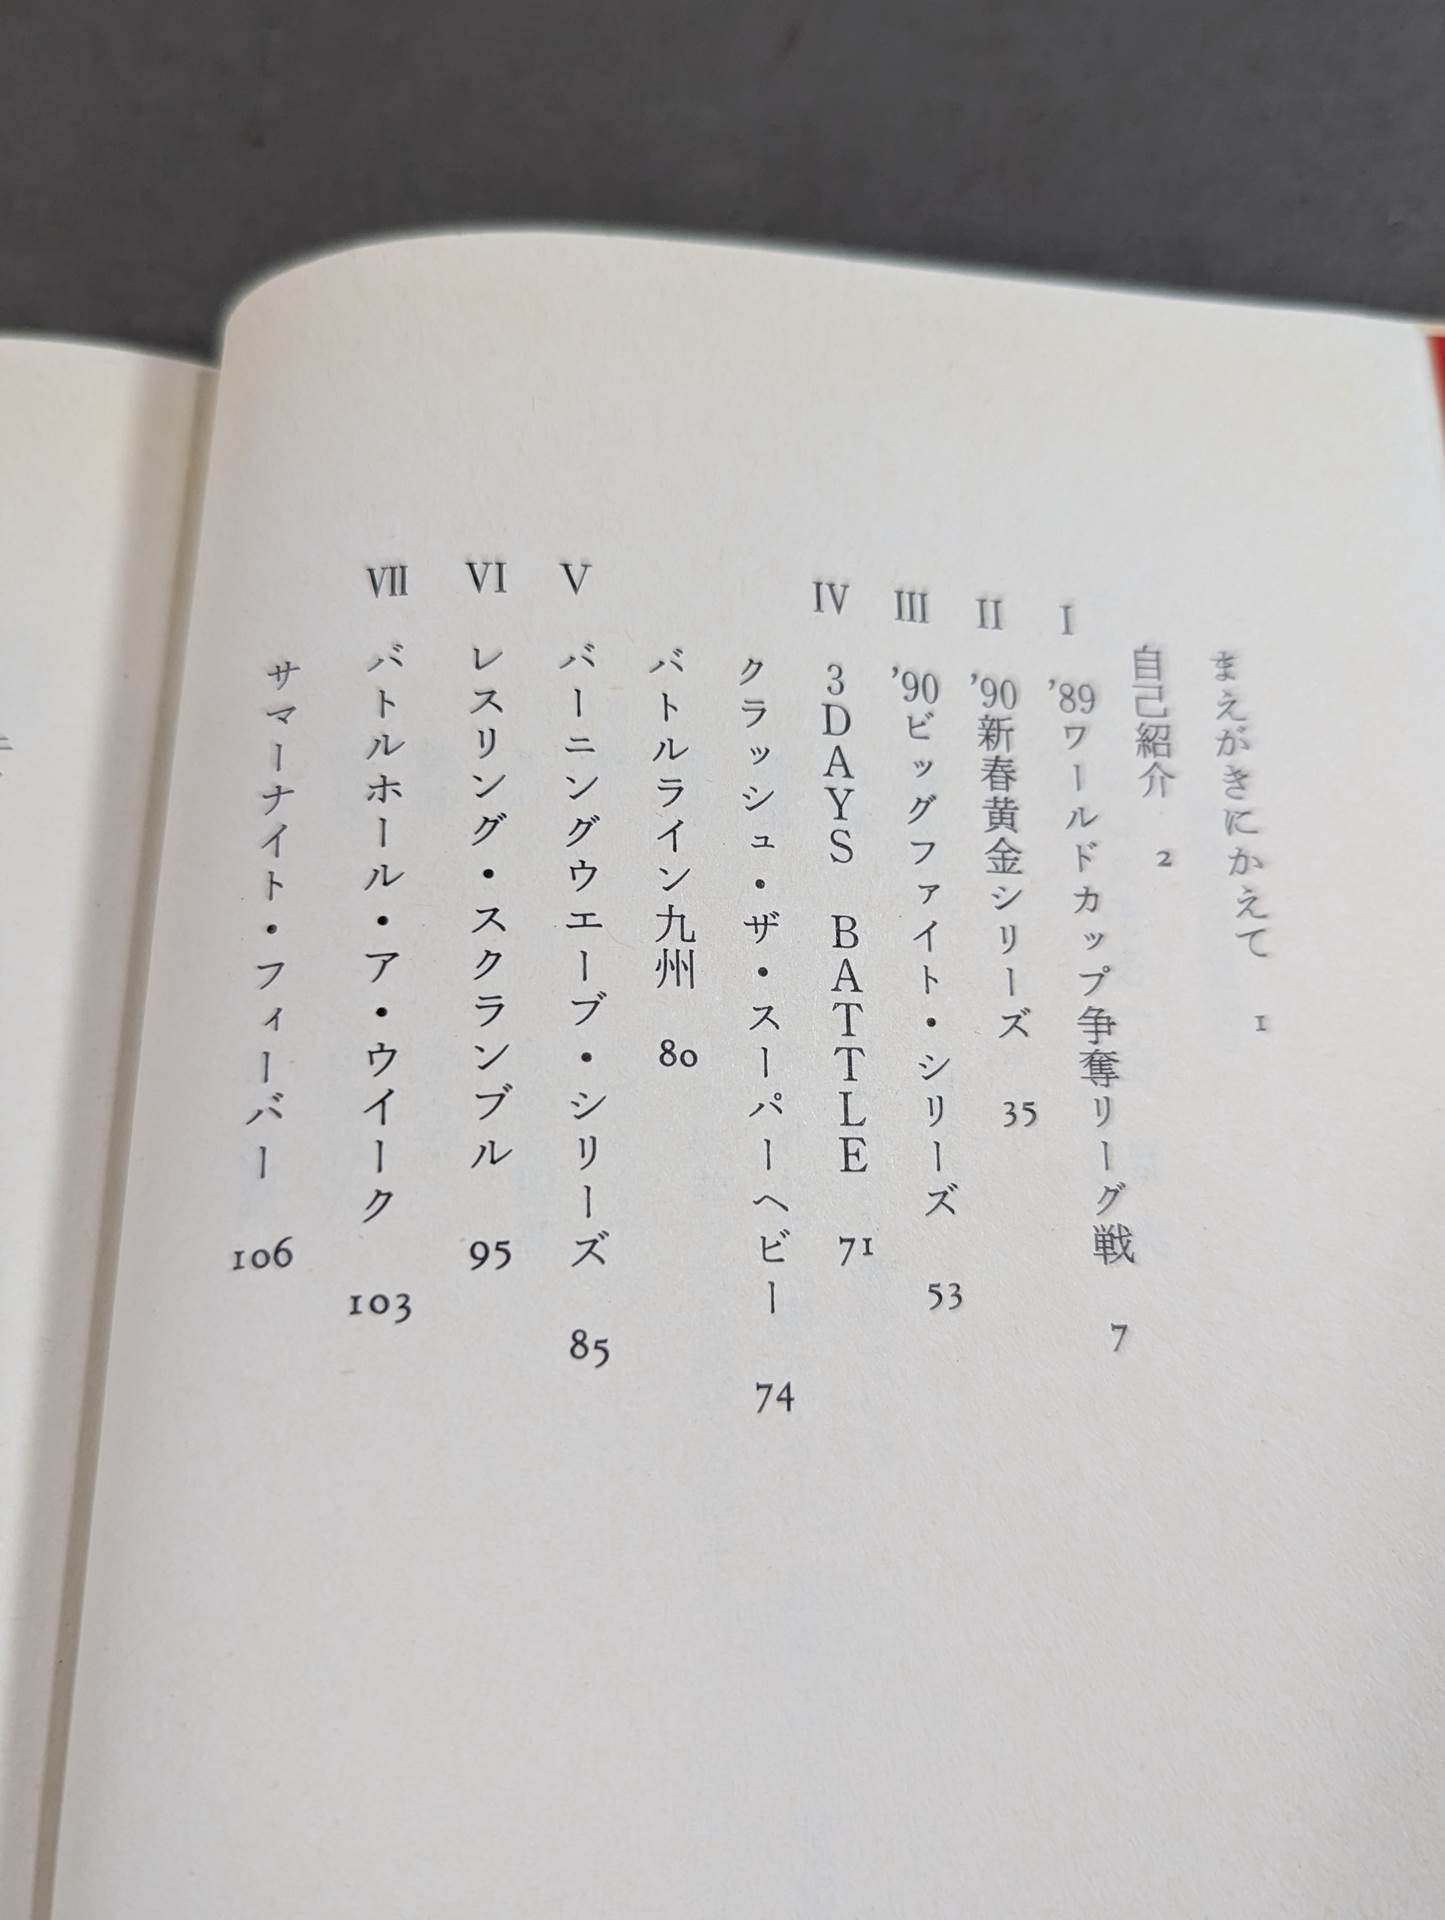 まえがきにかえて 1
自己紹介 2
I '89ワールドカップ争奪リーグ戦 7
II '90新春黄金シリーズ 35
III '90ビッグファイト・シリーズ 53
IV 3DAYS BATTLE 71
クラッシュ・ザ・スーパーヘビー 74
バトルライン九州 80
V バーニングウエーブ・シリーズ 85
VI レスリング・スクランブル 95
VII バトルホール・ア・ウイーク 103
サマーナイト・フィーバー 106